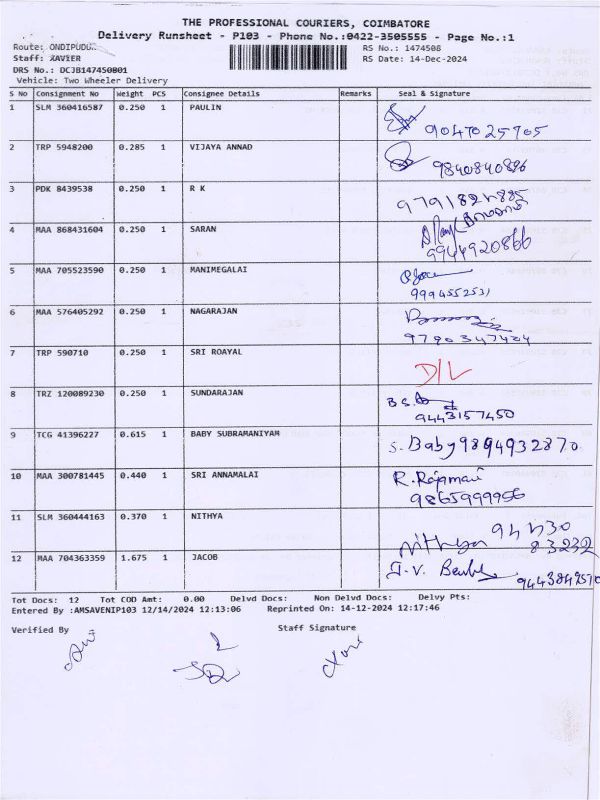 THE PROFESSIONAL COURIERS, COIMBATORE
Delivery Runsheet - P103 - Phone No.:0422-3505555 - Page No.:1
Route: ONDIPUDUR
RS No.: 1474508
Staff: XAVIER
RS Date: 14-Dec-2024
DRS No.: DCJB147450B01
Vehicle: Two Wheeler Delivery
S No Consignment No Weight PCS Consignee Details Remarks Seal & Signature
1 SLM 360416587 0.250 1 PAULIN
9047025705
2 TRP 5948200 0.285 1 VIJAYA ANNAD
9840840896
3 PDK 8439538 0.250 1 R K
4 MAA 868431604 0.250 1 SARAN
9944920866
5 MAA 705523590 0.250 1 MANIMEGALAI
9994552531
6 MAA 576405292 0.250 1 NAGARAJAN
9790347404
7 TRP 590710 0.250 1 SRI ROAYAL D/L
8 TRZ 120089230 0.250 1 SUNDARAJAN
9443157450
9 TCG 41396227 0.615 1 BABY SUBRAMANIYAM S. Baby 9894932870
10 MAA 300781445 0.440 1 SRI ANNAMALAI R. Rajamani
9865999956
11 SLM 360444163 0.370 1 NITHYA Nithya 94430
83232
12 MAA 704363359 1.675 1 JACOB
Tot Docs: 12 Tot COD Amt: 0.00 Delvd Docs: Non Delvd Docs: Delvy Pts:
Entered By :AMSAVENIP103 12/14/2024 12:13:06 Reprinted On: 14-12-2024 12:17:46
Verified By Staff Signature